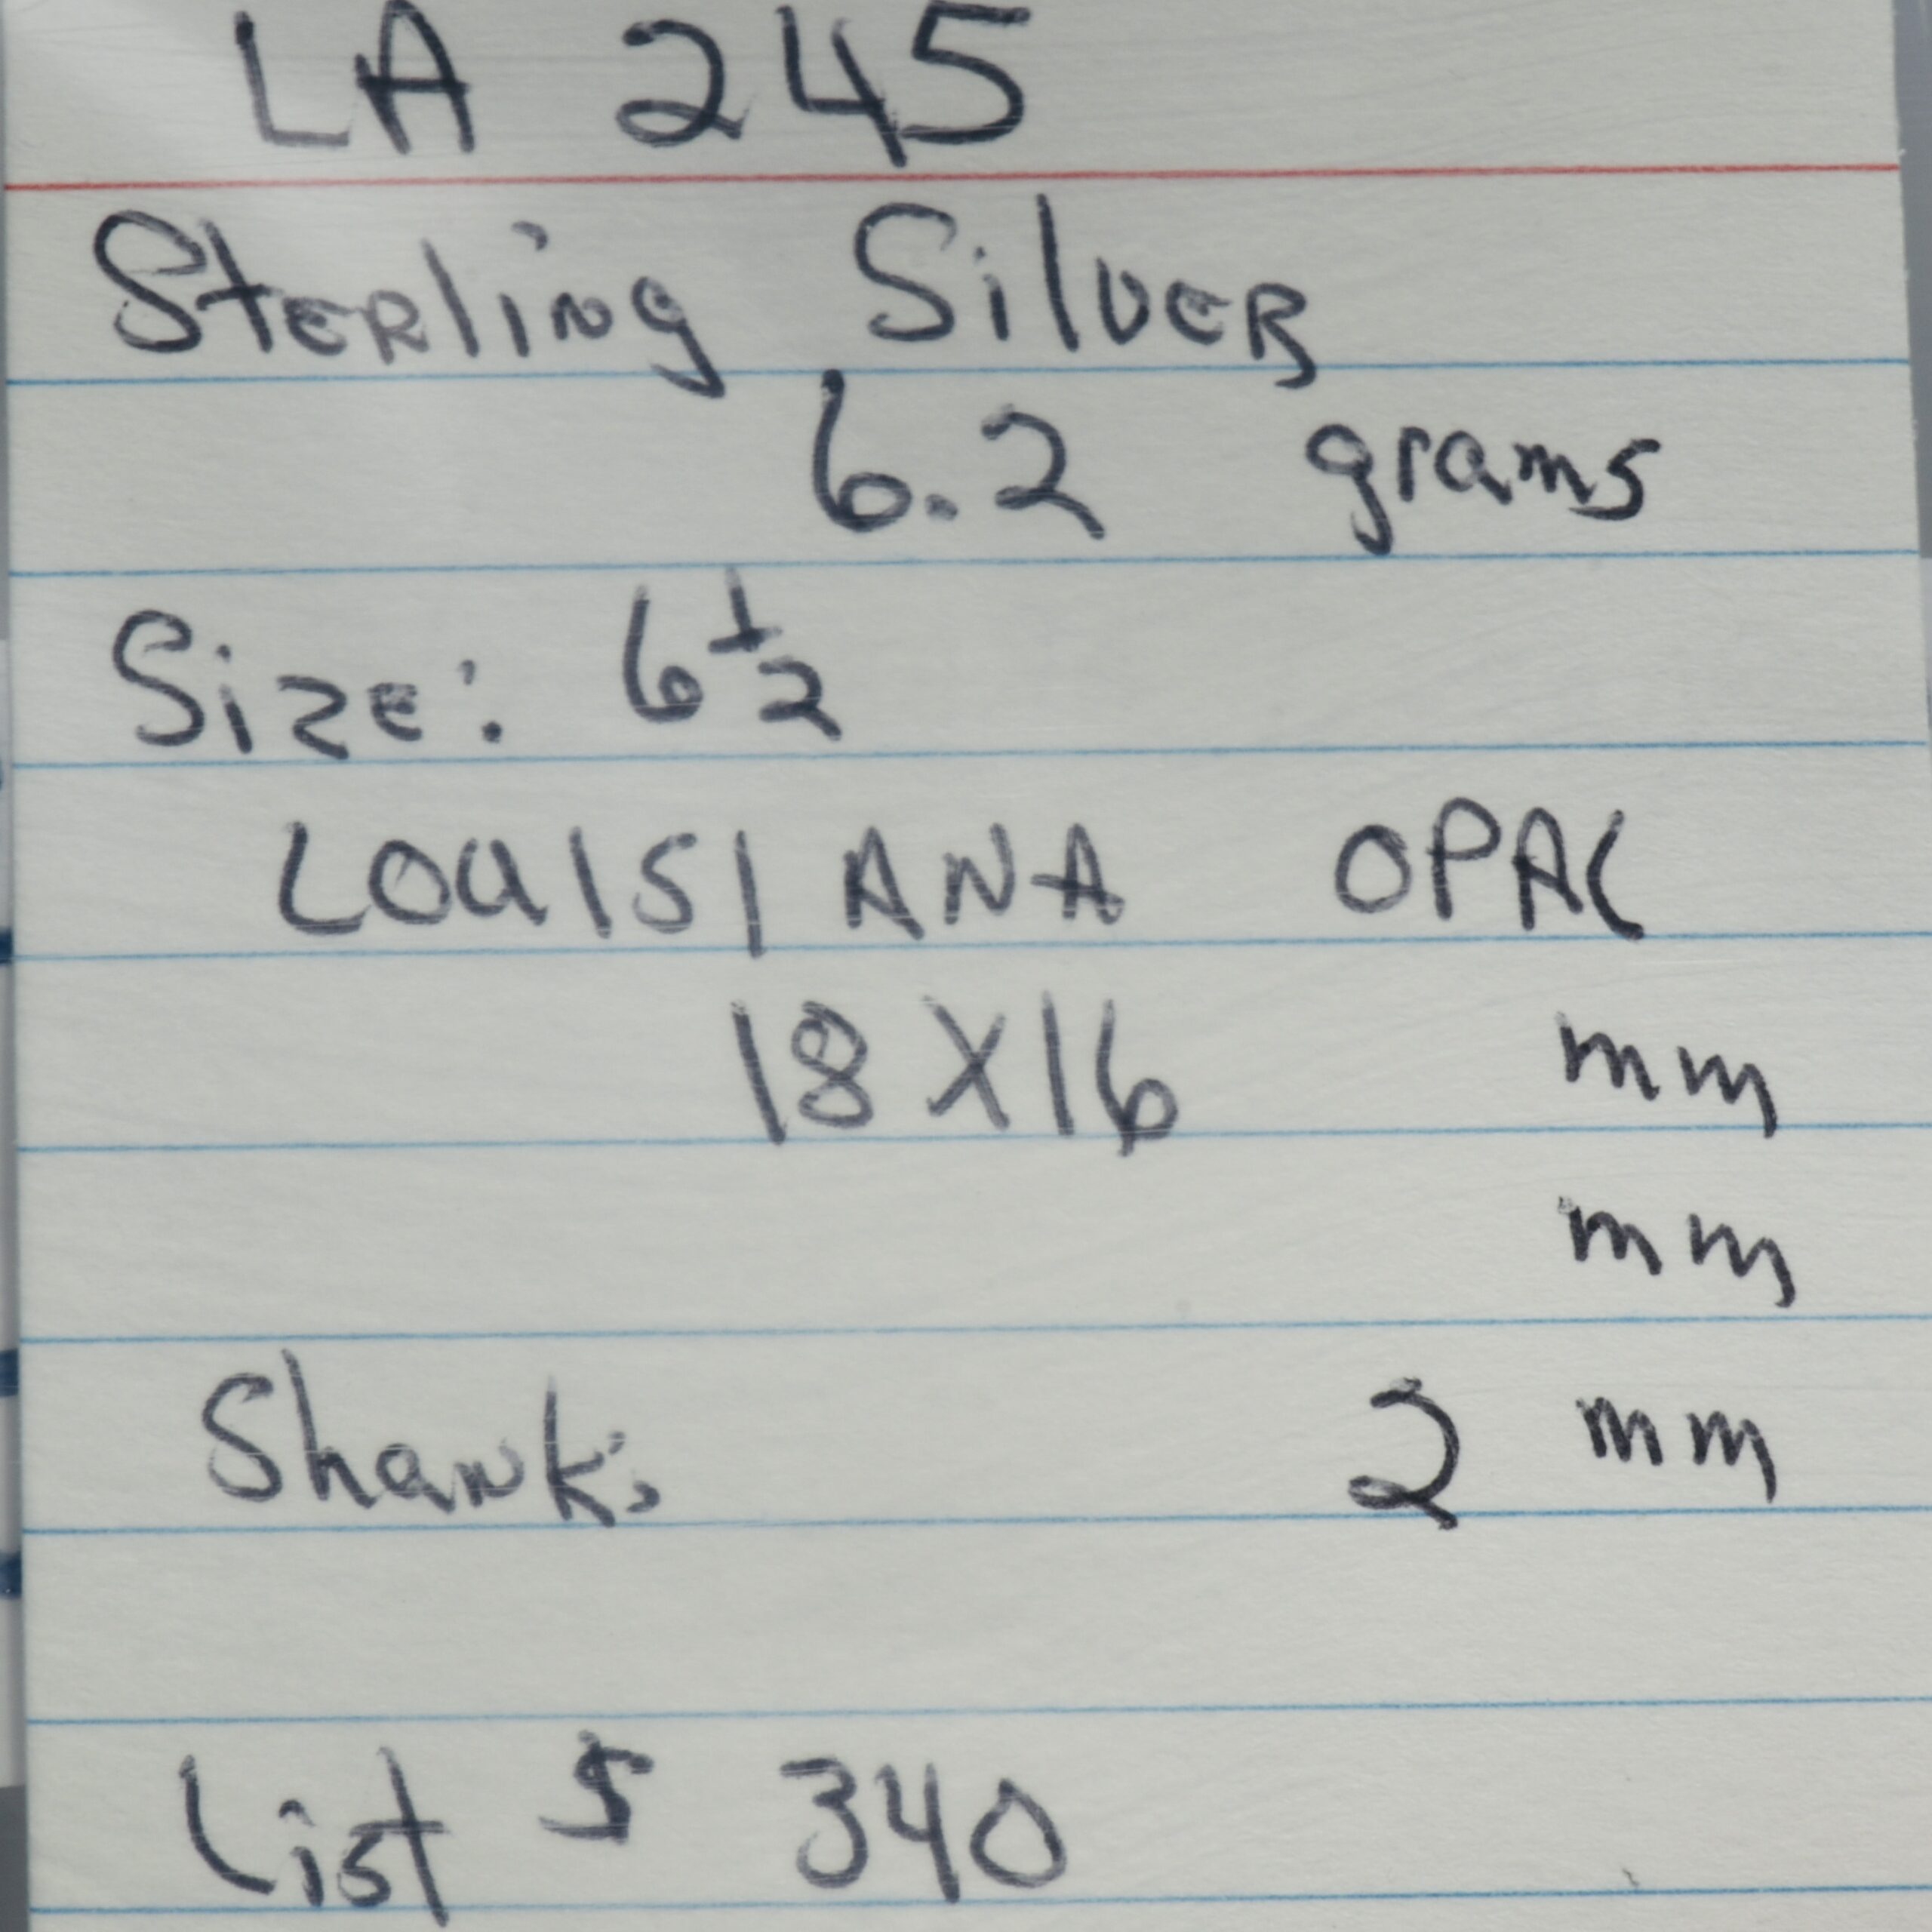 LA 245
Sterling Silver
6.2 grams
Size: 6 1/2
LOUISIANA OPAL
18 X 16 mm
mm
Shank: 2 mm
List $ 340